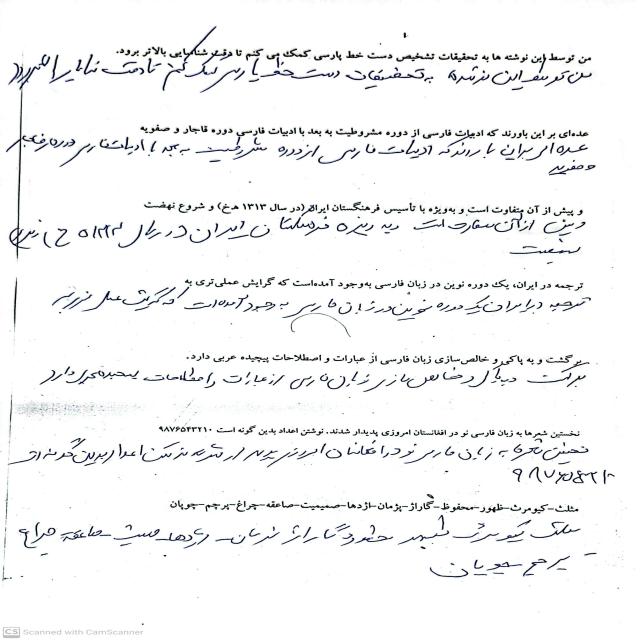 من توسط این نوشته ها به تحقیقات تشخیص دست خط پارسی کمک می کنم تا دقت شناسایی بالاتر برود.
من توسط این نوشته به تحقیقات دست خط پارسی کمک کنم تا دقت
عده‌ای بر این باورند که ادبیات فارسی از دوره مشروطیت به بعد با ادبیات فارسی دوره قاجار و صفویه
عده ای براین باورند که ادبیات فارسی از دوره مشروطیت به بعد با ادبیات فارسی دوره قاجار
و صفویه
و پیش از آن متفاوت است و به‌ویژه با تأسیس فرهنگستان ایران (در سال ۱۳۱۳ ه‍.خ) و شروع نهضت
و پیش از آن متفاوت است و به ویژه فرهنگستان ایران در سال
نهضت
ترجمه در ایران، یک دوره نوین در زبان فارسی به‌وجود آمده‌است که گرایش عملی‌تری به
ترجمه در ایران یک دوره نوین در زبان فارسی به وجود آمده است که گرایش عملی تری به
برگشت و به پاکی و خالص‌سازی زبان فارسی از عبارات و اصطلاحات پیچیده عربی دارد.
برگشت و پاکی و خالص سازی زبان فارسی از عبارات و اصطلاحات پیچیده عربی دارد
نخستین شعرها به زبان فارسی نو در افغانستان امروزی پدیدار شدند. نوشتن اعداد بدین گونه است ۹۸۷۶۵۴۳۲۱۰
نخستین شعرها به زبان فارسی نو در افغانستان امروزی پدیدار شدند نوشتن اعداد بدین گونه است
مثلث-کیومرث-ظهور-محفوظ-گاراژ-پژمان-اژدها-صمیمیت-صاعقه-چراغ-پرچم-چوپان
مثلث کیومرث ظهور محفوظ گاراژ پژمان - اژدها - صمیمیت - صاعقه چراغ
پرچم چوپان
CS Scanned with CamScanner